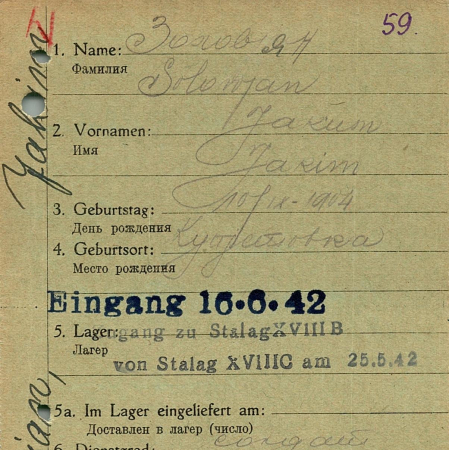 59.
1. Name:
Фамилия
Solowjan
2. Vornamen: Jakum
Имя
Jakim
3. Geburtstag: 10/IX-1904
День рождения
4. Geburtsort:
Место рождения
Eingang 16.6.42
5. Lager: gang zu Stalag XVIII B
Лагерь
von Stalag XVIIIC am 25.5.42
5a. Im Lager eingeliefert am:
Доставлен в лагерь (число)
6. Dienstgrad: солдат
Jakim